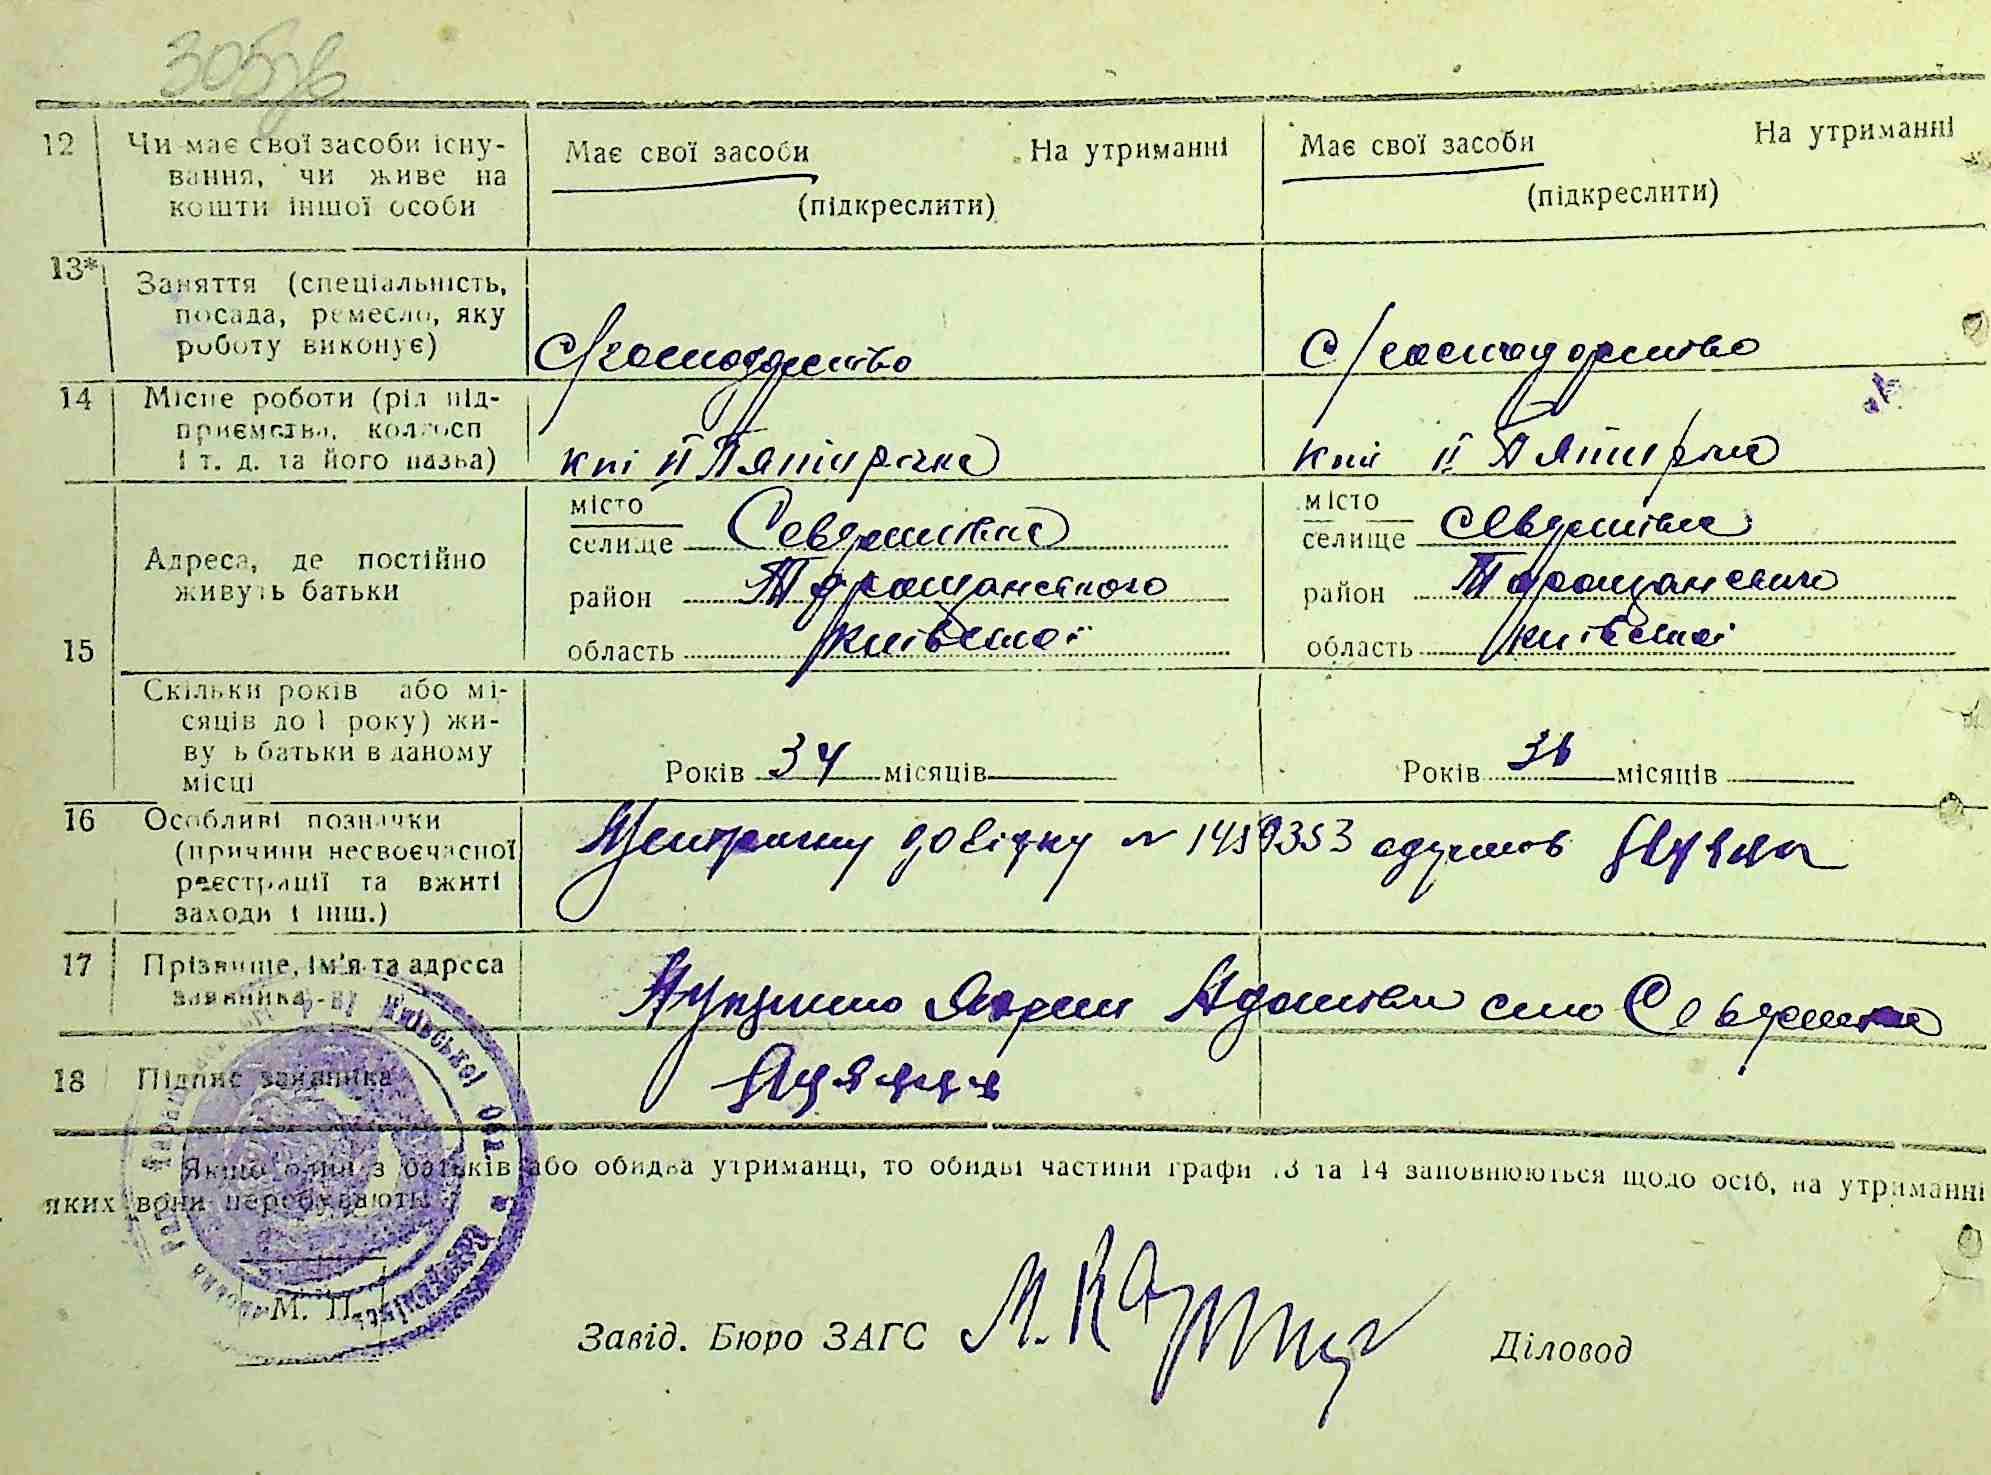 12 Чи має свої засоби існу-
вання, чи живе на
кошти іншої особи
Має свої засоби На утриманні
(підкреслити)
Має свої засоби На утриманні
(підкреслити)
13* Заняття (спеціальність,
посада, ремесло, яку
роботу виконує)
С/господарство
С/господарство
14 Місце роботи (рід під-
приємства, колгосп
і т. д. та його назва)
кпі ІІ Пятирічка
кпі ІІ
15 Адреса, де постійно
живуть батьки
місто
селище
район Таращанського
область київської
місто
селище
район Таращанського
область київської
Скільки років або мі-
сяців до 1 року) жи-
вуть батьки в даному
місці
Років 34 місяців
Років 36 місяців
16 Особливі позначки
(причини несвоєчасної
реєстрації та вжиті
заходи і інш.)
Метричну довідку № 1459353 одержав
17 Прізвище, ім'я та адреса
заявника
село
18 Підпис заявника
Київської обл.
Якщо один з батьків або обидва утриманці, то обидві частини графи 13 та 14 заповнюються щодо осіб, на утриманні
яких вони перебувають.
М. П.
Завід. Бюро ЗАГС
Діловод